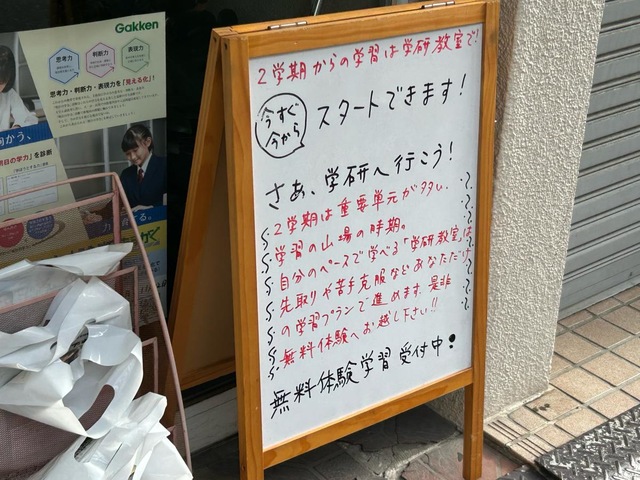 Gakken
思考力
判断力
表現力
思考力・判断力・表現力を「見える化」!
向かう、
明日の学力」を診断
2学期からの学習は学研教室で!
今すぐ
今から
スタートできます!
さぁ、学研へ行こう!
2学期は重要単元が多い、
学習の山場の時期。
自分のペースで学べる「学研教室」は
先取りや苦手克服などあなただけ
の学習プランで進めます。是非
無料体験へお越し下さい!!
無料体験学習 受付中!